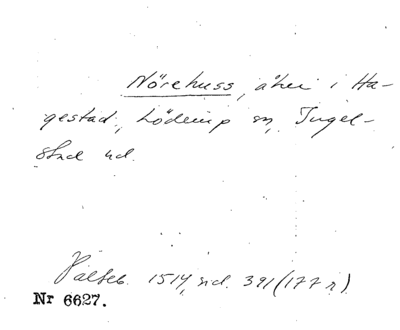 Nörehuss, åker i Ha-
gestad, Löderup sn, Ingel-
stad hd.
Palteb. 1514, sid. 391 (177 r)
Nr 6627.